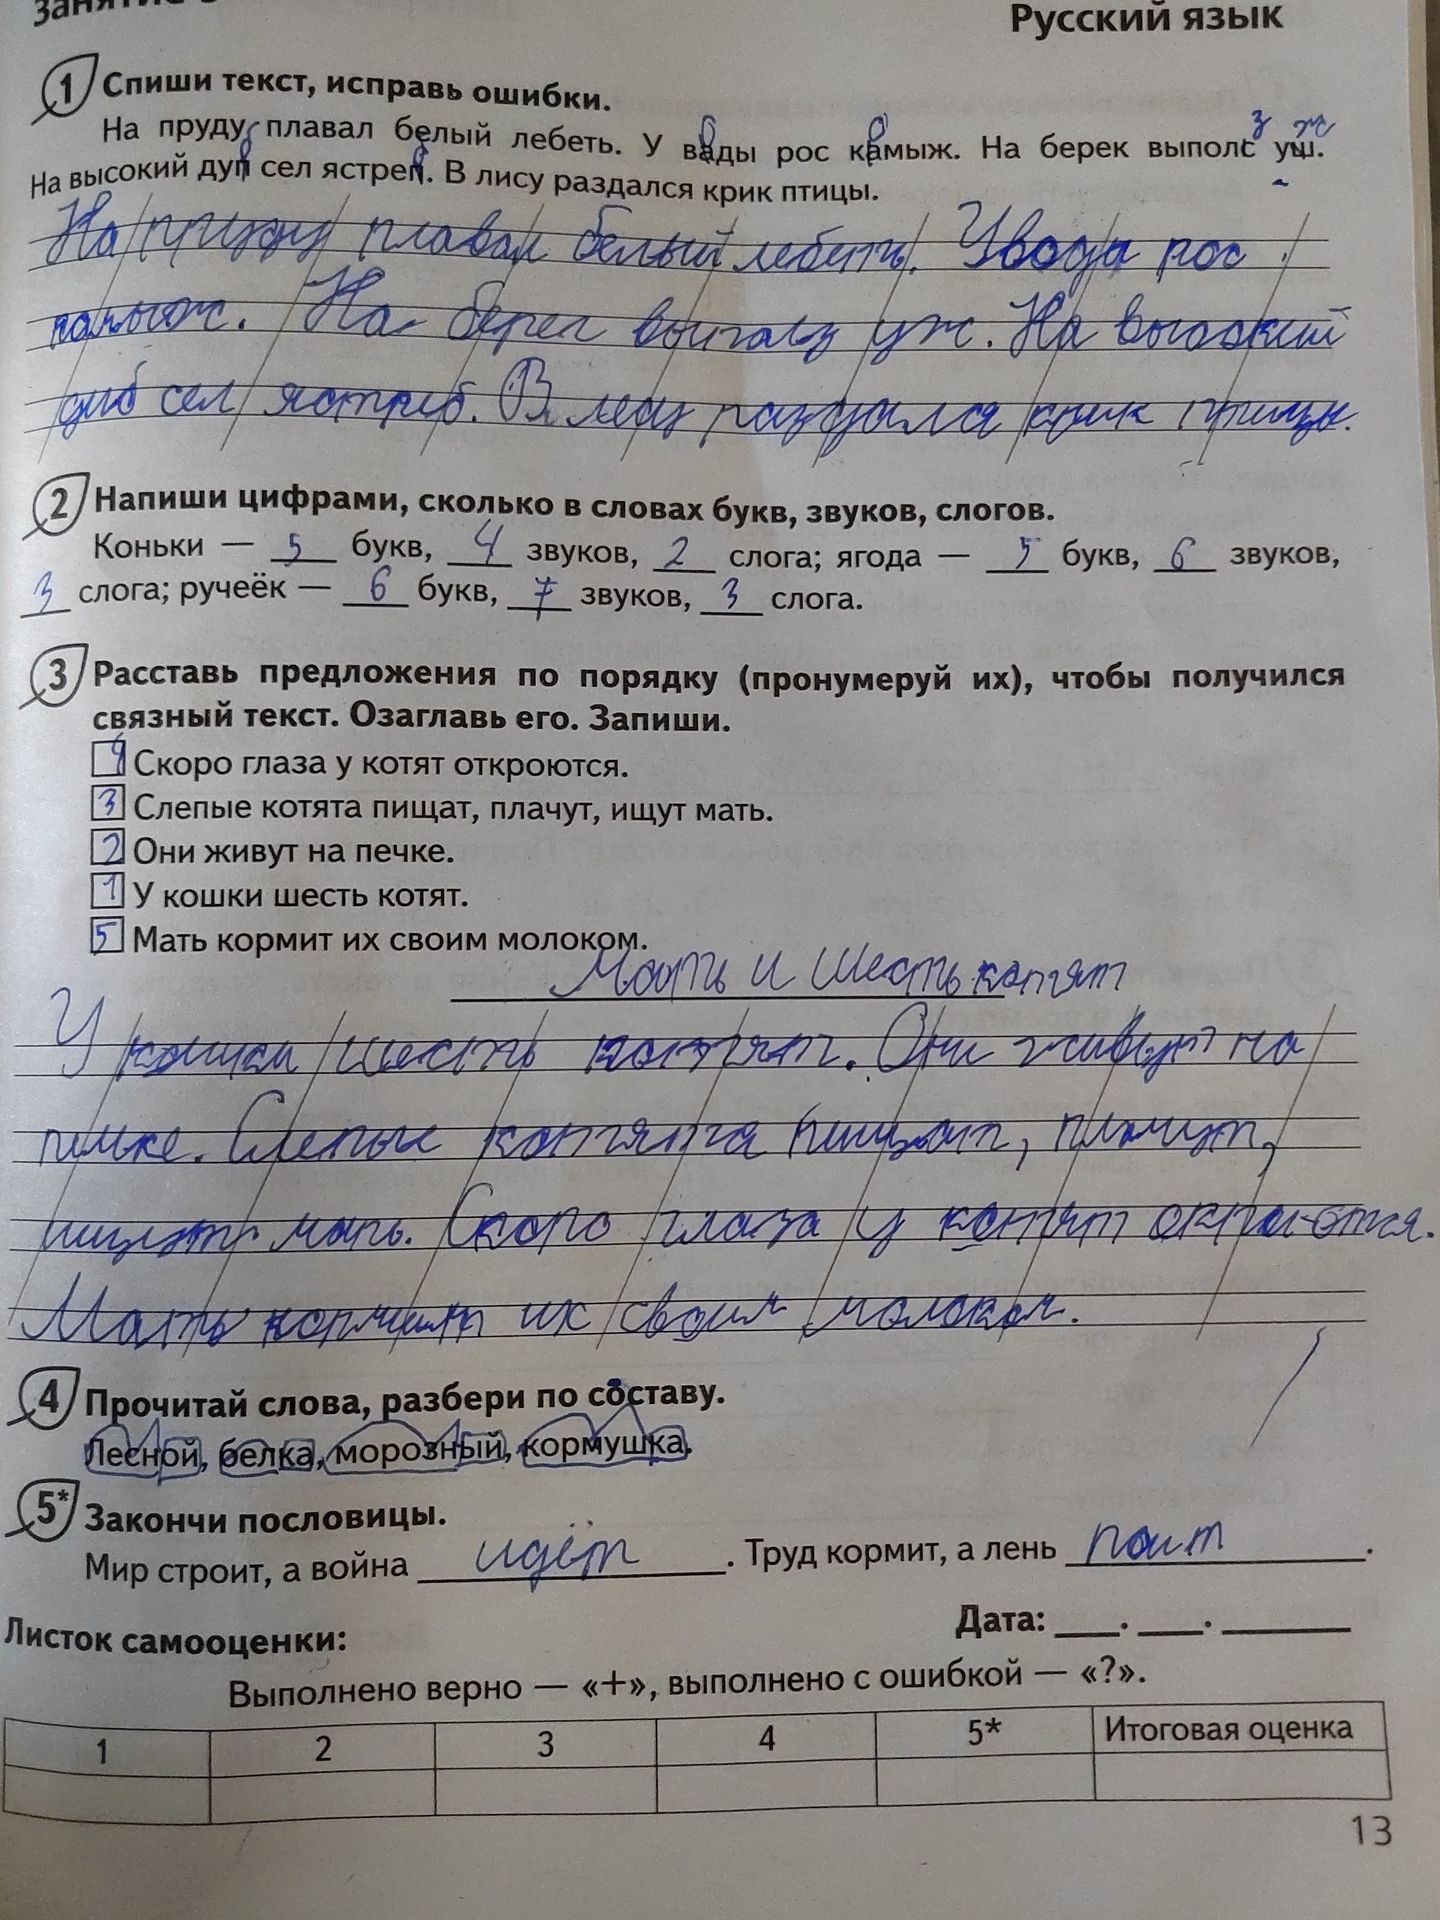 Занятие
Русский язык
1 Спиши текст, исправь ошибки.
На пруду плавал белый лебеть. У вады рос камыж. На берек выполс уш.
На высокий дуп сел ястреп. В лису раздался крик птицы.
На пруду плавал белый лебеть. У вода рос
камыж. На берег выполз уж. На высокий
дуб сел ястреб. В лесу раздался крик птицы.
2 Напиши цифрами, сколько в словах букв, звуков, слогов.
Коньки — 5 букв, 4 звуков, 2 слога; ягода — 5 букв, 6 звуков,
3 слога; ручеёк — 6 букв, 7 звуков, 3 слога.
3 Расставь предложения по порядку (пронумеруй их), чтобы получился
связный текст. Озаглавь его. Запиши.
4 Скоро глаза у котят откроются.
3 Слепые котята пищат, плачут, ищут мать.
2 Они живут на печке.
1 У кошки шесть котят.
5 Мать кормит их своим молоком.
Мать и шесть котят
У кошки шесть котят. Они живут на
печке. Слепые котята пищат, плачут,
ищут мать. Скоро глаза у котят
Мать кормит их своим молоком.
4 Прочитай слова, разбери по составу.
Лесной, белка, морозный, кормушка.
5* Закончи пословицы.
Мир строит, а война идёт. Труд кормит, а лень поит.
Листок самооценки:
Дата: ___.___.______
Выполнено верно — «+», выполнено с ошибкой — «?».
1 2 3 4 5* Итоговая оценка
13